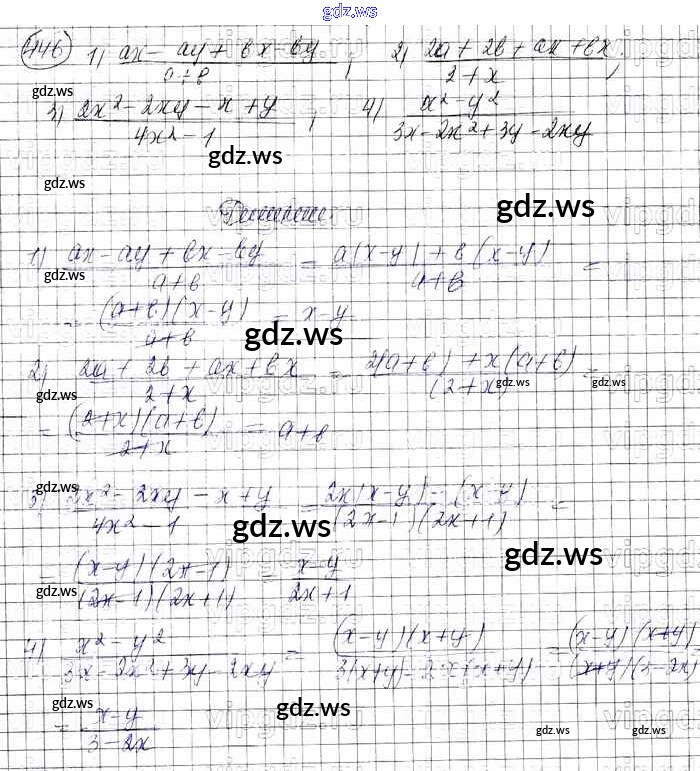 gdz.ws
446 1) (ax - ay + bx - by)/(a + b); 2) (2a + 2b + ax + bx)/(2 + x);
gdz.ws
3) (2x² - 2xy - x + y)/(4x² - 1); 4) (x² - y²)/(3x - 2x² + 3y - 2xy)
gdz.ws
gdz.ws
gdz.ws
Решение.
1) (ax - ay + bx - by)/(a + b) = (a(x - y) + b(x - y))/(a + b) =
gdz.ws
= ((a + b)(x - y))/(a + b) = x - y
gdz.ws
2) (2a + 2b + ax + bx)/(2 + x) = (2(a + b) + x(a + b))/(2 + x) =
gdz.ws gdz.ws gdz.ws
= ((2 + x)(a + b))/(2 + x) = a + b
gdz.ws
3) (2x² - 2xy - x + y)/(4x² - 1) = (2x(x - y) - (x - y))/((2x - 1)(2x + 1)) =
gdz.ws
gdz.ws
= ((x - y)(2x - 1))/((2x - 1)(2x + 1)) = (x - y)/(2x + 1)
gdz.ws
4) (x² - y²)/(3x - 2x² + 3y - 2xy) = ((x - y)(x + y))/(3(x + y) - 2x(x + y)) = ((x - y)(x + y))/((x + y)(3 - 2x)
gdz.ws gdz.ws
= (x - y)/(3 - 2x)
gdz.ws gdz.ws